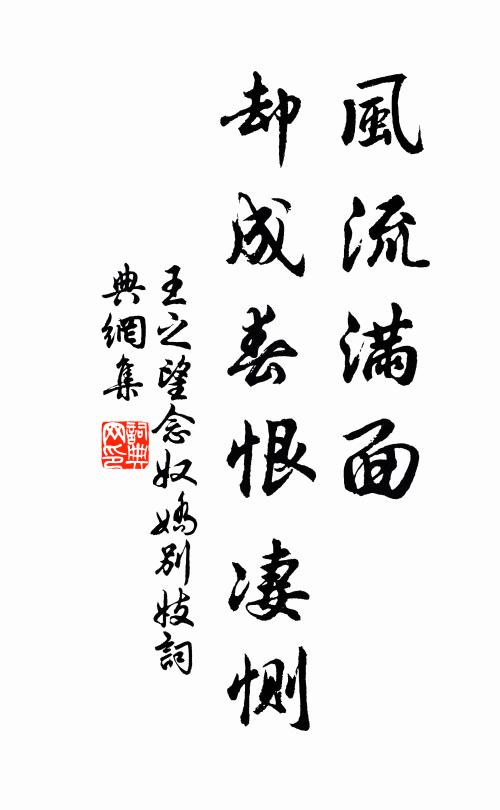 風流滿面
却成春恨凄惻
王之望念奴嬌別妓詞
典網集
詞典網印